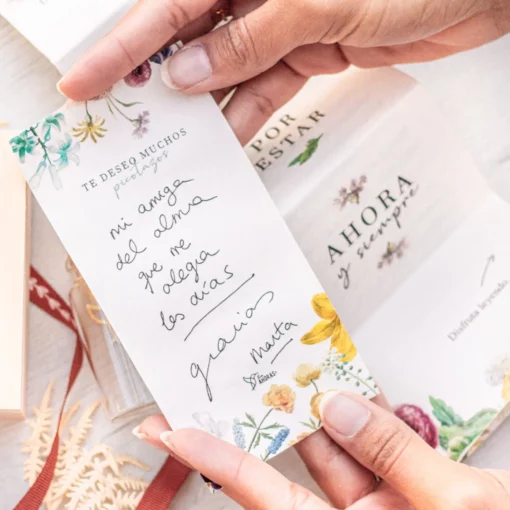 TE DESEO MUCHOS
picotazos
mi amiga
del alma
que me
alegra
los días
gracias
Marta
POR
ESTAR
AHORA
y siempre
Disfruta leyendo